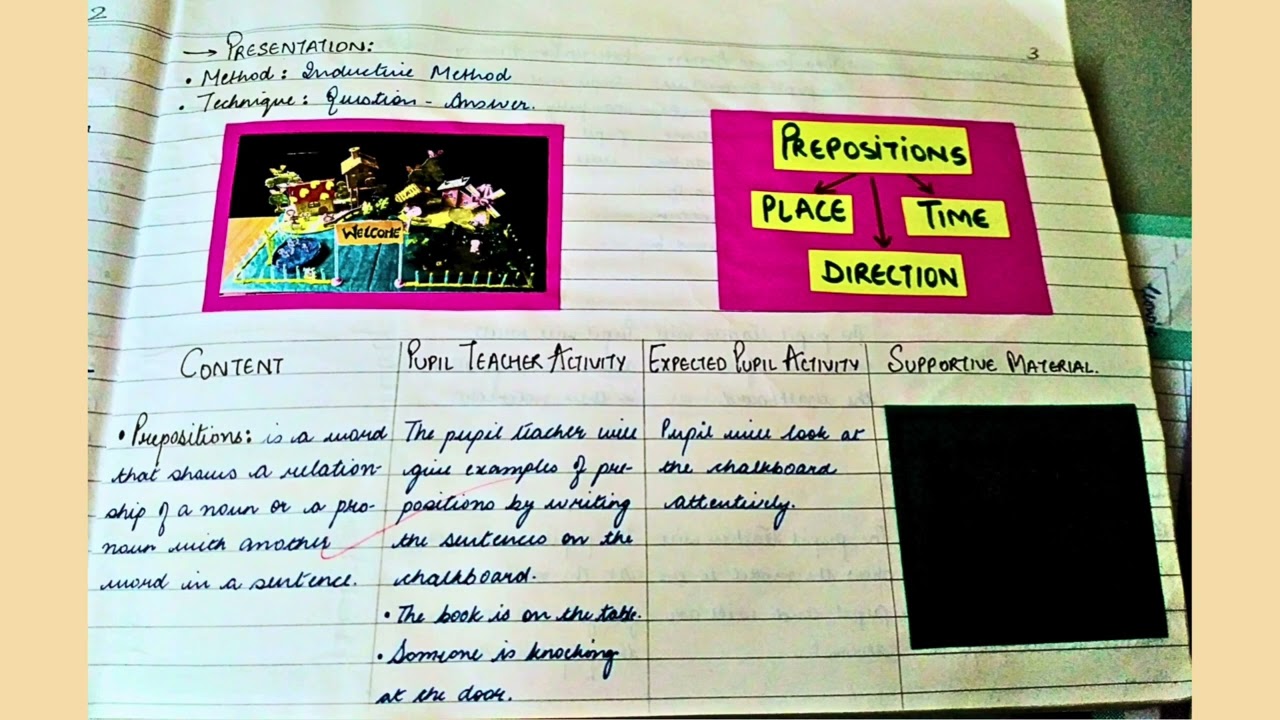 2
3
→ PRESENTATION:
• Method: Inductive Method
• Technique: Question - Answer.
WELCOME
PREPOSITIONS
PLACE
TIME
DIRECTION
CONTENT
• Prepositions: is a word
that shows a relation-
ship of a noun or a pro-
noun with another
word in a sentence.
PUPIL TEACHER ACTIVITY
The pupil teacher will
give examples of pre-
positions by writing
the sentences on the
chalkboard.
• The book is on the table.
• Someone is knocking
at the door.
EXPECTED PUPIL ACTIVITY
Pupil will look at
the chalkboard
attentively.
SUPPORTIVE MATERIAL.